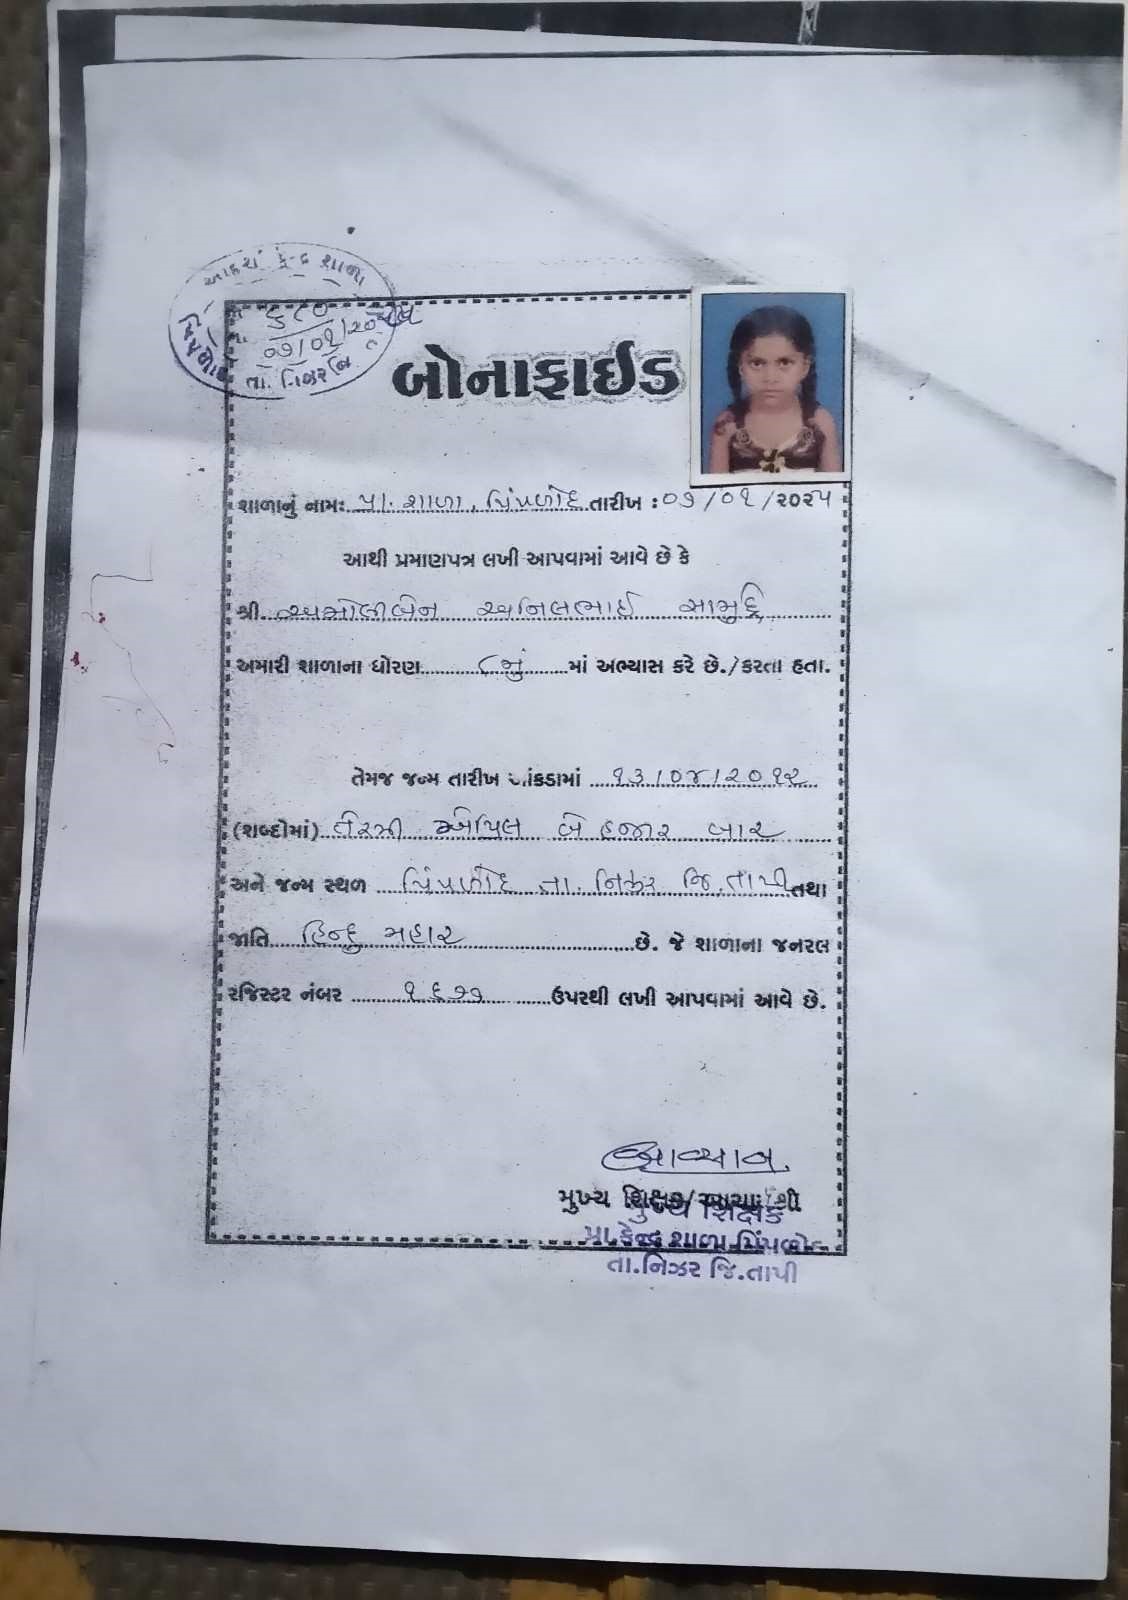 આદર્શ કેન્દ્ર શાળા
૬૮૦
૦૭/૦૧/૨૦૨૫
તા. નિઝર જિ.
બોનાફાઈડ
શાળાનું નામ: પ્રા. શાળા, પિંપળોદ તારીખ : ૦૭/૦૧/૨૦૨૫
આથી પ્રમાણપત્ર લખી આપવામાં આવે છે કે
શ્રી. અમોલીબેન અનિલભાઈ સામુદ્રે
અમારી શાળાના ધોરણ ૮નું માં અભ્યાસ કરે છે./કરતા હતા.
તેમજ જન્મ તારીખ આંકડામાં ૧૩/૦૪/૨૦૧૨
(શબ્દોમાં) તેરમી એપ્રિલ બે હજાર બાર
અને જન્મ સ્થળ પિંપળોદ તા. નિઝર જિ. તાપી તથા
જાતિ હિન્દુ મહાર છે. જે શાળાના જનરલ
રજિસ્ટર નંબર ૧૬૭૭ ઉપરથી લખી આપવામાં આવે છે.
મુખ્ય શિક્ષક/આચાર્ય શ્રી
મુખ્ય શિક્ષક
પ્રા.કેન્દ્ર શાળા પિંપળોદ
તા.નિઝર જિ.તાપી